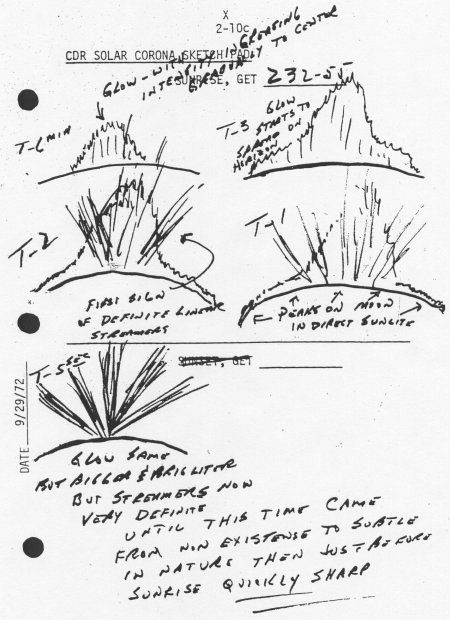 X
2-10c
CDR SOLAR CORONA SKETCH PAD
SUNRISE, GET 232-55
GLOW - WITH INCREASING
INTENSITY
GRADUALLY TO CENTER
T-6 MIN
T-3
GLOW
STARTS TO
SPREAD ON
HORIZON
T-2
T-1
FIRST SIGN
OF DEFINITE LINEAR
STREAMERS
PEAKS ON MOON
IN DIRECT SUNLITE
T-5 SEC
SUNSET, GET
DATE 9/29/72
GLOW SAME
BUT BIGGER & BRIGHTER
BUT STREAMERS NOW
VERY DEFINITE
UNTIL THIS TIME CAME
FROM NON EXISTENSE TO SUBTLE
IN NATURE THEN JUST BEFORE
SUNRISE QUICKLY SHARP